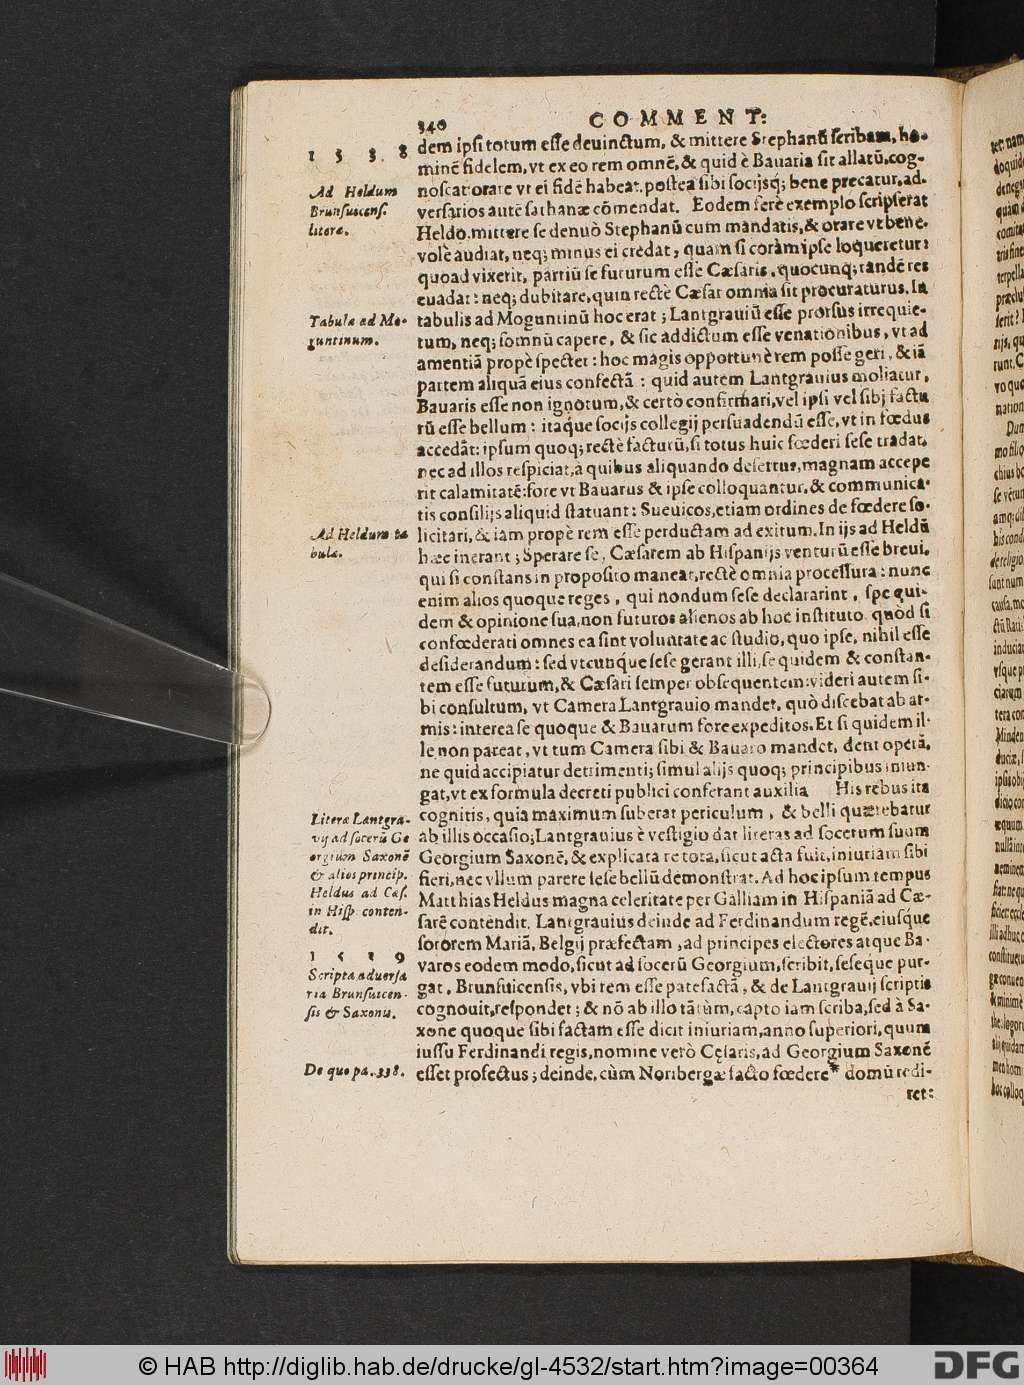 340
COMMENT:
1 5 3. 8
Ad Heldum
Brunsuicens.
literæ.
Tabulæ ad Mo-
guntinum.
Ad Heldum ta
bulæ.
Literæ Lantgra-
vij ad socerũ Ge
orgium Saxonẽ
& alios princip.
Heldus ad Cæs.
in Hisp. conten-
dit.
1 5 3 9
Scripta aduersa
ria Brunsuicen-
sis & Saxonis.
De quo pa. 338.
dem ipsi totum esse deuinctum, & mittere Stephanũ scribam, ho-
minẽ fidelem, vt ex eo rem omnẽ, & quid è Bauaria sit allatũ, cog-
noscat: orare vt ei fidẽ habeat. postea sibi socijsq; bene precatur, ad-
versarios autẽ sathanæ cõmendat. Eodem ferè exemplo scripserat
Heldo, mittere se denuò Stephanũ cum mandatis, & orare vt bene-
volè audiat, neq; minus ei credat, quam si coràm ipse loqueretur:
quoad vixerit, partiũ se futurum esse Cæsaris, quocunq; tandẽ res
euadat: neq; dubitare, quin rectè Cæsar omnia sit procuraturus. In
tabulis ad Moguntinũ hoc erat; Lantgrauiũ esse prorsus irrequie-
tum, neq; somnũ capere, & sic addictum esse venationibus, vt ad
amentiã propè spectet: hoc magis opportunè rem posse geri, & iã
partem aliquã eius confectã: quid autem Lantgrauius moliatur,
Bauaris esse non ignotum, & certò confirmari, vel ipsi vel sibi factu
rũ esse bellum: itaque socijs collegij persuadendũ esse, vt in fœdus
accedãt: ipsum quoq; rectè facturũ, si totus huic fœderi sese tradat,
nec ad illos respiciat, à quibus aliquando desertus, magnam accepe
rit calamitatẽ: fore vt Bauarus & ipse colloquantur, & communica-
tis consilijs aliquid statuant: Sueuicos, etiam ordines de fœdere so-
licitari, & iam propè rem esse perductam ad exitum. In ijs ad Heldũ
hæc inerant; Sperare se, Cæsarem ab Hispanijs venturũ esse breui,
qui si constans in proposito maneat, rectè omnia processura: nunc
enim alios quoque reges, qui nondum sese declararint, spe qui-
dem & opinione sua, non futuros alienos ab hoc instituto. quòd si
confœderati omnes ea sint voluntate ac studio, quo ipse, nihil esse
desiderandum: sed vtcunque sese gerant illi, se quidem & constan-
tem esse futurum, & Cæsari semper obsequentem: videri autem si-
bi consultum, vt Camera Lantgrauio mandet, quò discebat ab ar-
mis: interea se quoque & Bauarum fore expeditos. Et si quidem il-
le non pareat, vt tum Camera sibi & Bauaro mandet, dent operã,
ne quid accipiatur detrimenti; simul alijs quoq; principibus iniun-
gat, vt ex formula decreti publici conferant auxilia His rebus ita
cognitis, quia maximum suberat periculum, & belli quærebatur
ab illis occasio; Lantgrauius è vestigio dat literas ad socerum suum
Georgium Saxonẽ, & explicata re tota, sicut acta fuit, iniuriam sibi
fieri, nec vllum parere sese bellũ demonstrat. Ad hoc ipsum tempus
Matthias Heldus magna celeritate per Galliam in Hispaniã ad Cæ-
sarẽ contendit. Lantgrauius deinde ad Ferdinandum regẽ, eiusque
sororem Mariã, Belgij præfectam, ad principes electores atque Ba-
varos eodem modo, sicut ad socerũ Georgium, scribit, seseque pur-
gat. Brunsuicensis, vbi rem esse patefactã, & de Lantgrauij scriptis
cognouit, respondet; & nõ ab illo tãtùm, capto iam scriba, sed à Sa-
xone quoque sibi factam esse dicit iniuriam, anno superiori, quum
iussu Ferdinandi regis, nomine verò Cęsaris, ad Georgium Saxonẽ
esset profectus; deinde, cùm Noribergæ facto fœdere* domũ redi-
ret:
© HAB http://diglib.hab.de/drucke/gl-4532/start.htm?image=00364
DFG